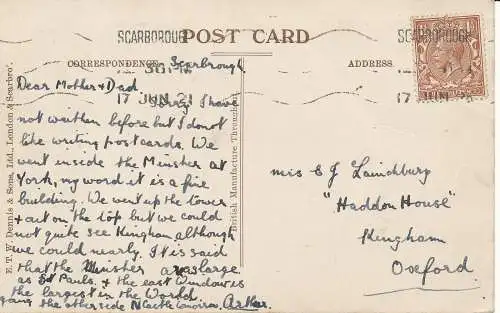 SCARBOROUGH
POST CARD
SCARBOROUGH
CORRESPONDENCE
ADDRESS
17 JUN 21
17 JUN 21
E. T. W. Dennis & Sons, Ltd., London & Scarbro'.
British Manufacture Throughout
Scarbrough
Dear Mother & Dad
Sorry I have
not written before but I do not
like writing postcards. We
went inside the Minster at
York, my word it is a fine
building. We went up the tower
& out on the top but we could
not quite see Kingham although
we could nearly. It is said
that the Minster as large
as St Pauls. & the east Window is
the largest in the World
the other side Arthur.
Mis E J Lainchbury
"Haddon House"
Kingham
Oxford.